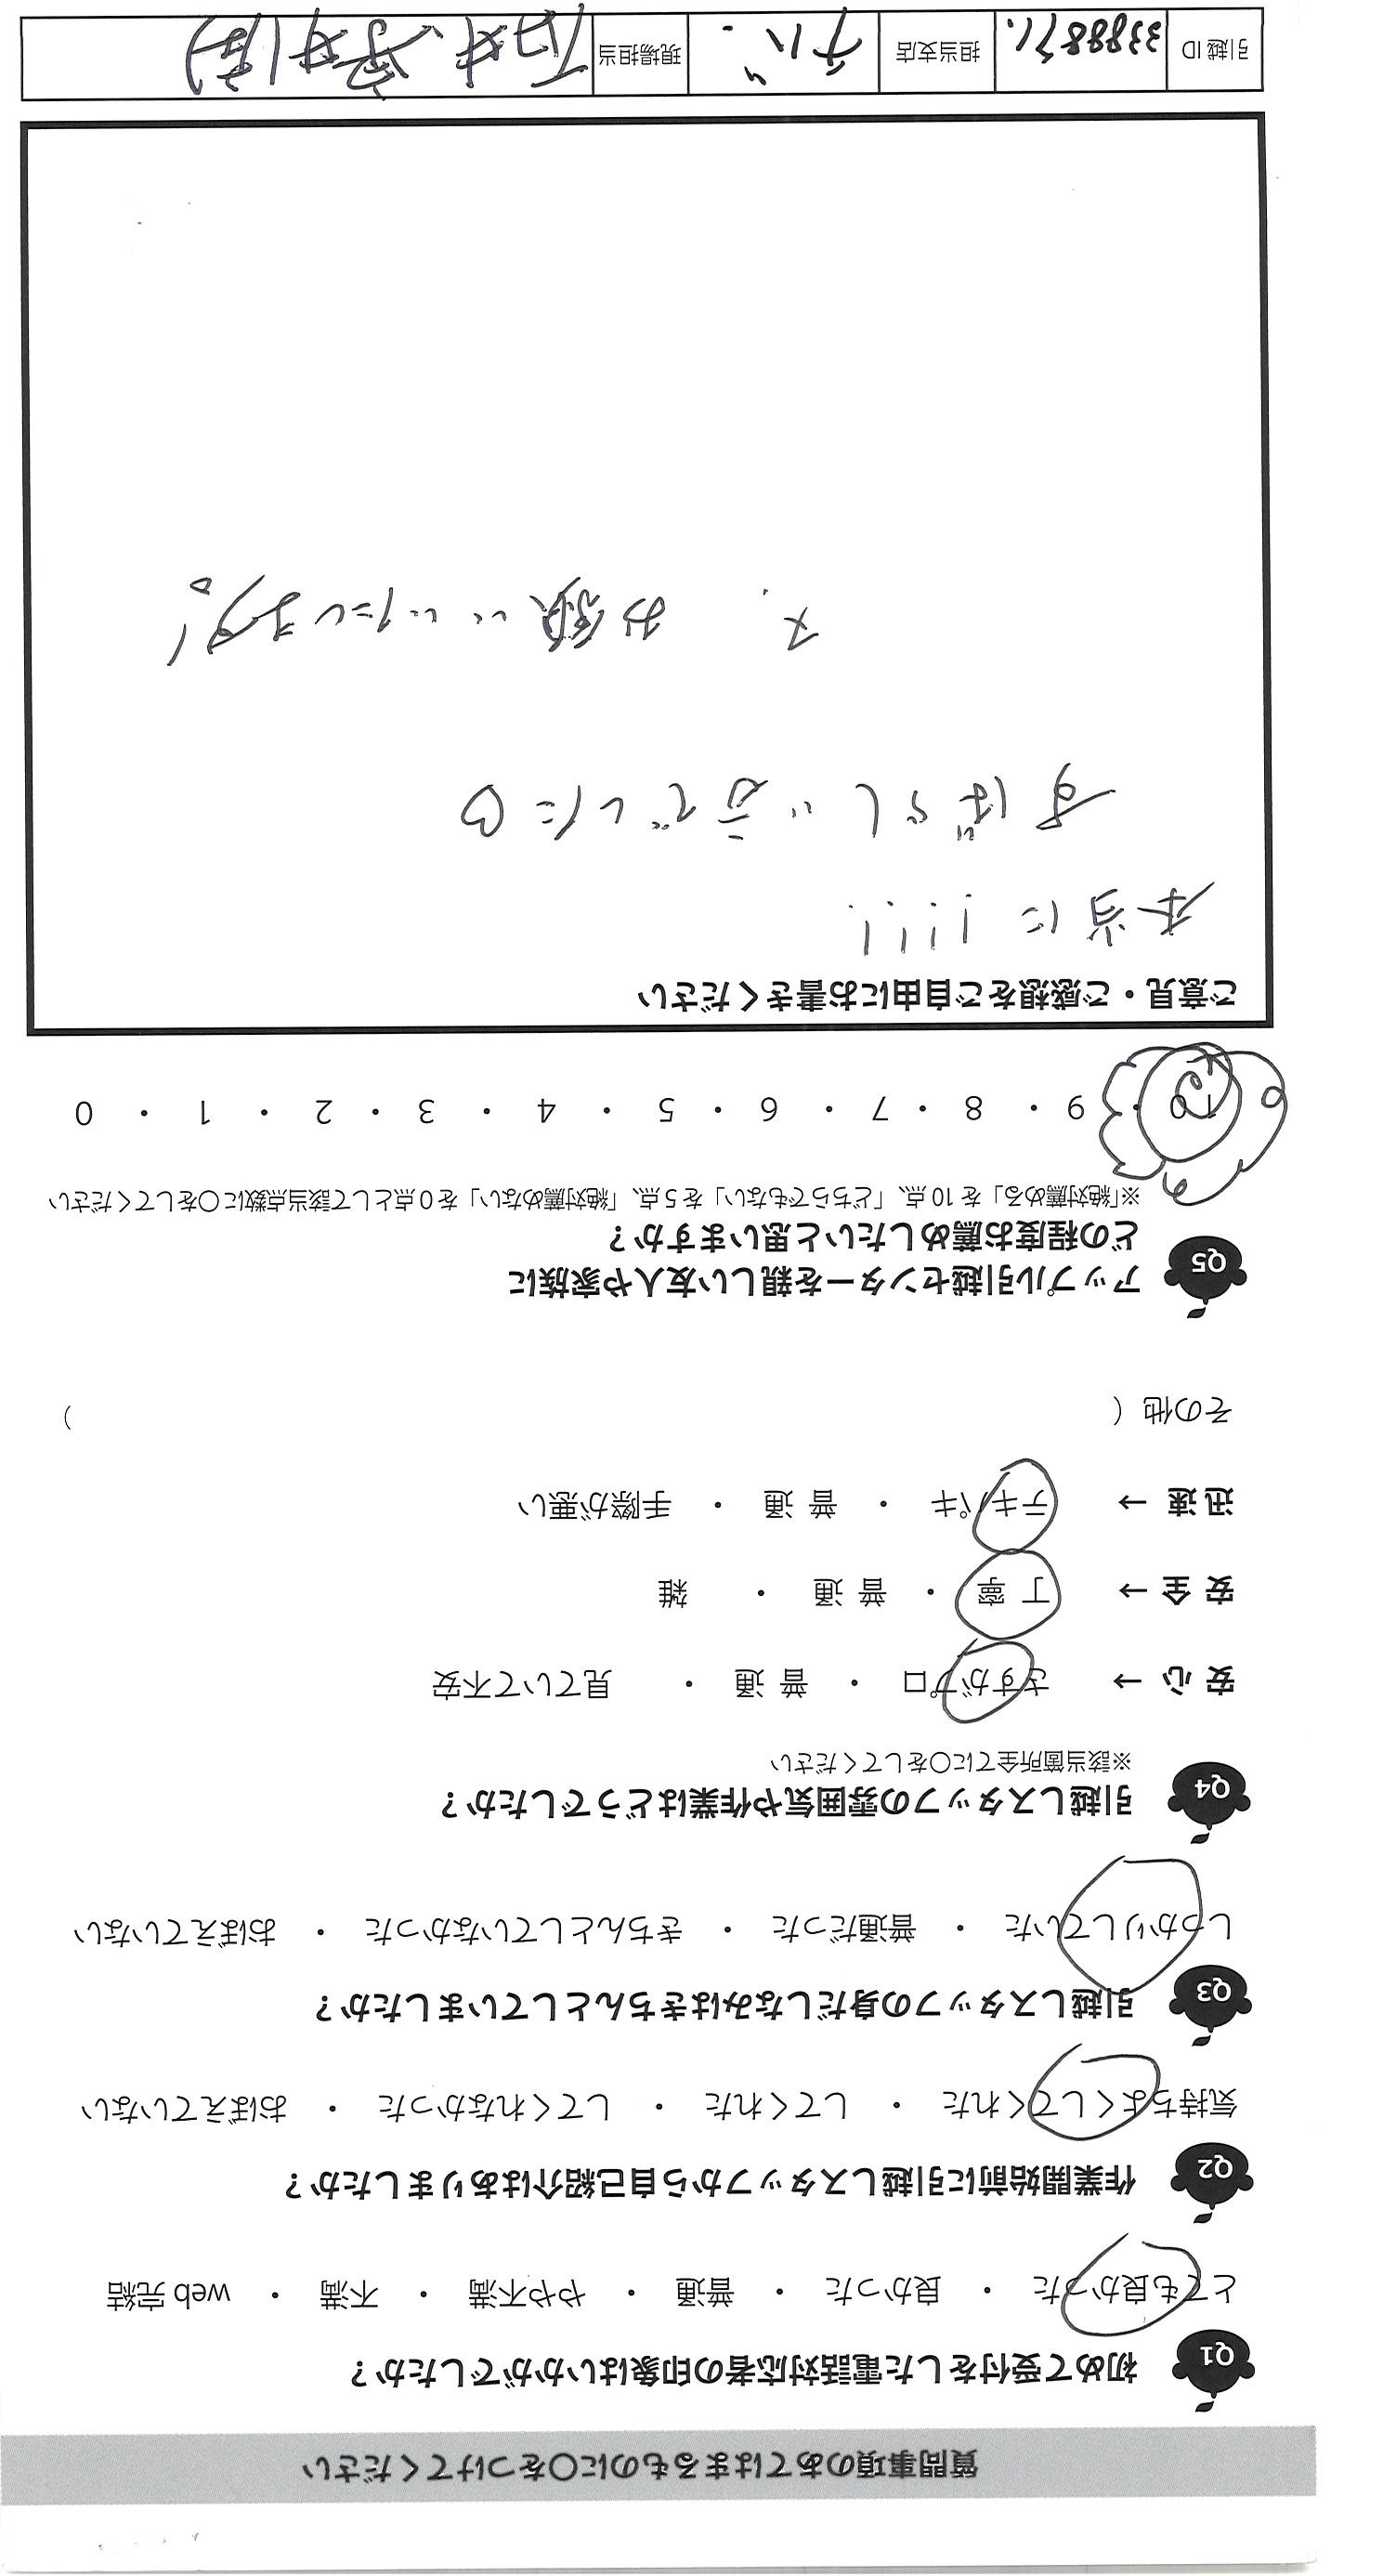 質問事項のあてはまるものに○をつけてください
Q1 初めて受付をした電話対応者の印象はいかがでしたか？
とても良かった ・ 良かった ・ 普通 ・ やや不満 ・ 不満 ・ web 完結
Q2 作業開始前に引越しスタッフから自己紹介はありましたか？
気持ちよくしてくれた ・ してくれた ・ してくれなかった ・ おぼえていない
Q3 引越しスタッフの身だしなみはきちんとしていましたか？
しっかりしていた ・ 普通だった ・ きちんとしていなかった ・ おぼえていない
Q4 引越しスタッフの雰囲気や作業はどうでしたか？
※該当箇所全てに○をしてください
安 心 → さすがプロ ・ 普 通 ・ 見ていて不安
安 全 → 丁 寧 ・ 普 通 ・ 雑
迅 速 → テキパキ ・ 普 通 ・ 手際が悪い
その他（ ）
Q5 アップル引越センターを親しい友人や家族に
どの程度お薦めしたいと思いますか？
※「絶対薦める」を 10 点、「どちらでもない」を 5 点、「絶対薦めない」を 0 点として該当点数に○をしてください
10 ・ 9 ・ 8 ・ 7 ・ 6 ・ 5 ・ 4 ・ 3 ・ 2 ・ 1 ・ 0
ご意見・ご感想をご自由にお書きください
本当に !!!!
すばらしい方でした♡
又、お願いいたします。
引越 ID 担当支店 チバ 現場担当